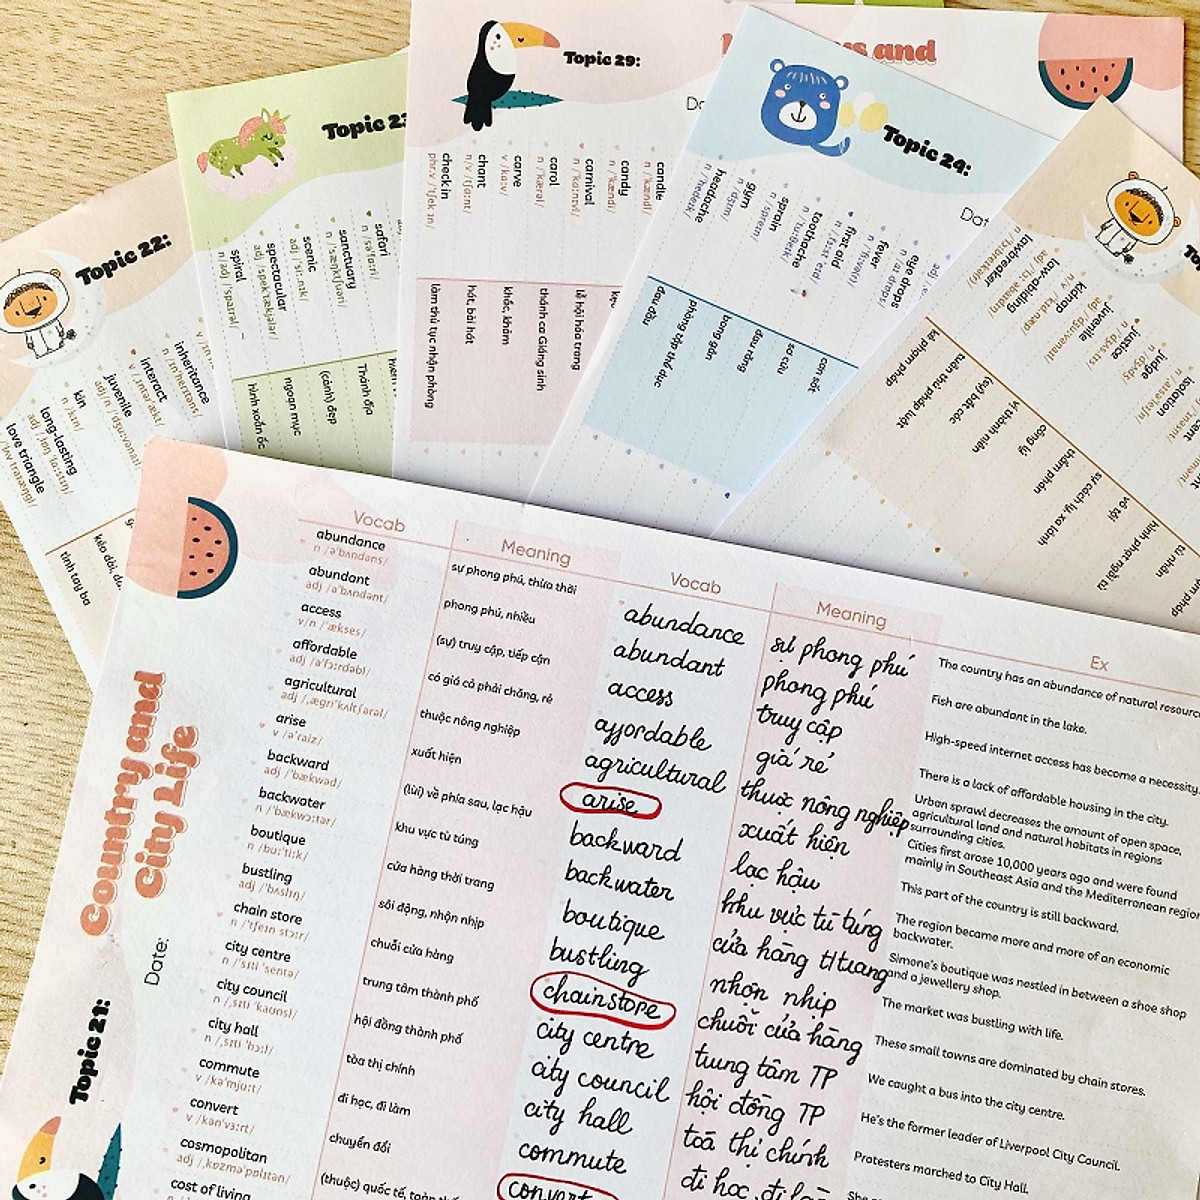 Topic 22:
inheritance
n /ɪnˈherɪtəns/
interact
v /ˌɪntərˈækt/
juvenile
kin
n /kɪn/
long-lasting
adj /ˌlɒŋ ˈlɑːstɪŋ/
love triangle
tình tay ba
Topic 23
safari
n /səˈfɑːri/
sanctuary
n /ˈsæŋktʃuəri/
scenic
adj /ˈsiːnɪk/
spectacular
adj /spekˈtækjələr/
spiral
n/adj /ˈspaɪrəl/
Thánh địa
(cảnh) đẹp
ngoạn mục
hình xoắn ốc
Topic 29:
and
candle
n /ˈkændl/
candy
n /ˈkændi/
carnival
n /ˈkɑːnɪvl/
carol
n /ˈkærəl/
carve
v /kɑːv/
chant
n/v /tʃɑːnt/
check in
phr.v /ˈtʃek ɪn/
lễ hội hóa trang
thánh ca Giáng sinh
khắc, khảm
hát, bài hát
làm thủ tục nhận phòng
Topic 24:
eye drops
n /aɪ drɒps/
fever
first aid
toothache
n /ˈtuːθeɪk/
sprain
n /spreɪn/
gym
n /dʒɪm/
headache
n /ˈhedeɪk/
cơn sốt
sơ cứu
đau răng
bong gân
phòng tập thể dục
đau đầu
isolation
judge
n /dʒʌdʒ/
justice
juvenile
kidnap
law-abiding
lawbreaker
tù nhân
hình phạt ngồi tù
vô tội
sự cách ly, xa lánh
thẩm phán
công lý
vị thành niên
(sự) bắt cóc
tuân thủ pháp luật
kẻ phạm pháp
Topic 21:
Country and
City Life
Date:
Vocab Meaning Vocab Meaning Ex
abundance
n /əˈbʌndəns/
sự phong phú, thừa thãi
abundance
sự phong phú
The country has an abundance of natural
abundant
adj /əˈbʌndənt/
phong phú, nhiều
abundant
phong phú
Fish are abundant in the lake.
access
v/n /ˈækses/
(sự) truy cập, tiếp cận
access
truy cập
High-speed internet access has become a necessity.
affordable
adj /əˈfɔːrdəbl/
có giá cả phải chăng, rẻ
affordable
giá rẻ
There is a lack of affordable housing in the city.
agricultural
adj /ˌæɡrɪˈkʌltʃərəl/
thuộc nông nghiệp
agricultural
thuộc nông nghiệp
Urban sprawl decreases the amount of open space,
agricultural land and natural habitats in regions
surrounding cities.
arise
v /əˈraɪz/
xuất hiện
arise
xuất hiện
Cities first arose 10,000 years ago and were found
mainly in Southeast Asia and the Mediterranean
backward
adj /ˈbækwəd/
(lùi) về phía sau, lạc hậu
backward
lạc hậu
This part of the country is still backward.
backwater
n /ˈbækwɔːtər/
khu vực tù túng
backwater
khu vực tù túng
The region became more and more of an economic
backwater.
boutique
n /buːˈtiːk/
cửa hàng thời trang
boutique
cửa hàng t/trang
Simone's boutique was nestled in between a shoe shop
and a jewellery shop.
bustling
adj /ˈbʌslɪŋ/
sôi động, nhộn nhịp
bustling
nhộn nhịp
The market was bustling with life.
chain store
n /ˈtʃeɪn stɔːr/
chuỗi cửa hàng
chain store
chuỗi cửa hàng
These small towns are dominated by chain stores.
city centre
n /ˈsɪti ˈsentə/
trung tâm thành phố
city centre
trung tâm TP
We caught a bus into the city centre.
city council
n /ˌsɪti ˈkaʊnsl/
hội đồng thành phố
city council
hội đồng TP
He's the former leader of Liverpool City Council.
city hall
n /ˌsɪti ˈhɔːl/
tòa thị chính
city hall
toà thị chính
Protesters marched to City Hall.
commute
v /kəˈmjuːt/
đi học, đi làm
commute
đi học, đi làm
convert
v /kənˈvɜːrt/
chuyển đổi
convert
cosmopolitan
adj /ˌkɒzməˈpɒlɪtən/
(thuộc) quốc tế,
cost of living